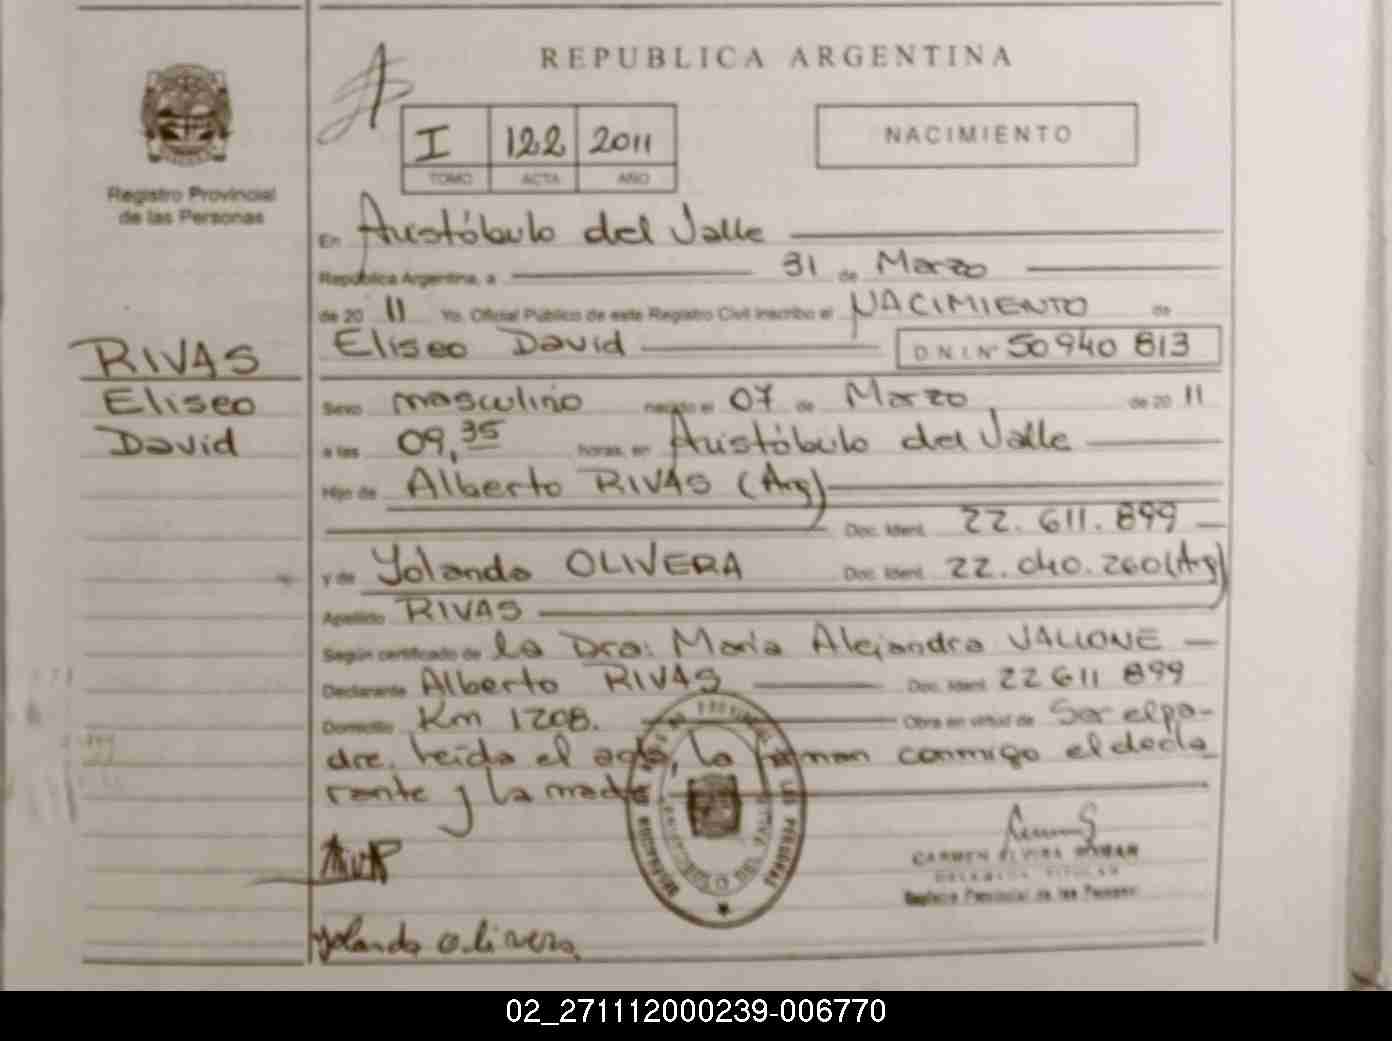 REPUBLICA ARGENTINA
I 122 2011
TOMO ACTA AÑO
NACIMIENTO
Registro Provincial
de las Personas
En Aristóbulo del Valle
República Argentina, a 31 de Marzo
de 20 11 Yo, Oficial Público de este Registro Civil inscribo el NACIMIENTO de
Eliseo David D N I Nº 50 940 813
RIVAS
Eliseo
David
Sexo masculino nacido el 07 de Marzo de 20 11
a las 09,35 horas, en Aristóbulo del Valle
Hijo de Alberto RIVAS (Arg)
Doc. Ident. 22.611.899
y de Yolanda OLIVERA Doc. Ident. 22.040.260 (Arg)
Apellido RIVAS
Según certificado de la Dra: María Alejandra VALLONE
Declarante Alberto RIVAS Doc. Ident. 22 611 899
Domicilio Km 1208. Obra en virtud de Ser el pa-
dre. leída el acta, la firman conmigo el decla
rante y la madre
CARMEN ELVIRA
DELEGADA TITULAR
Registro Provincial de las Personas
Yolanda Olivera
02_271112000239-006770